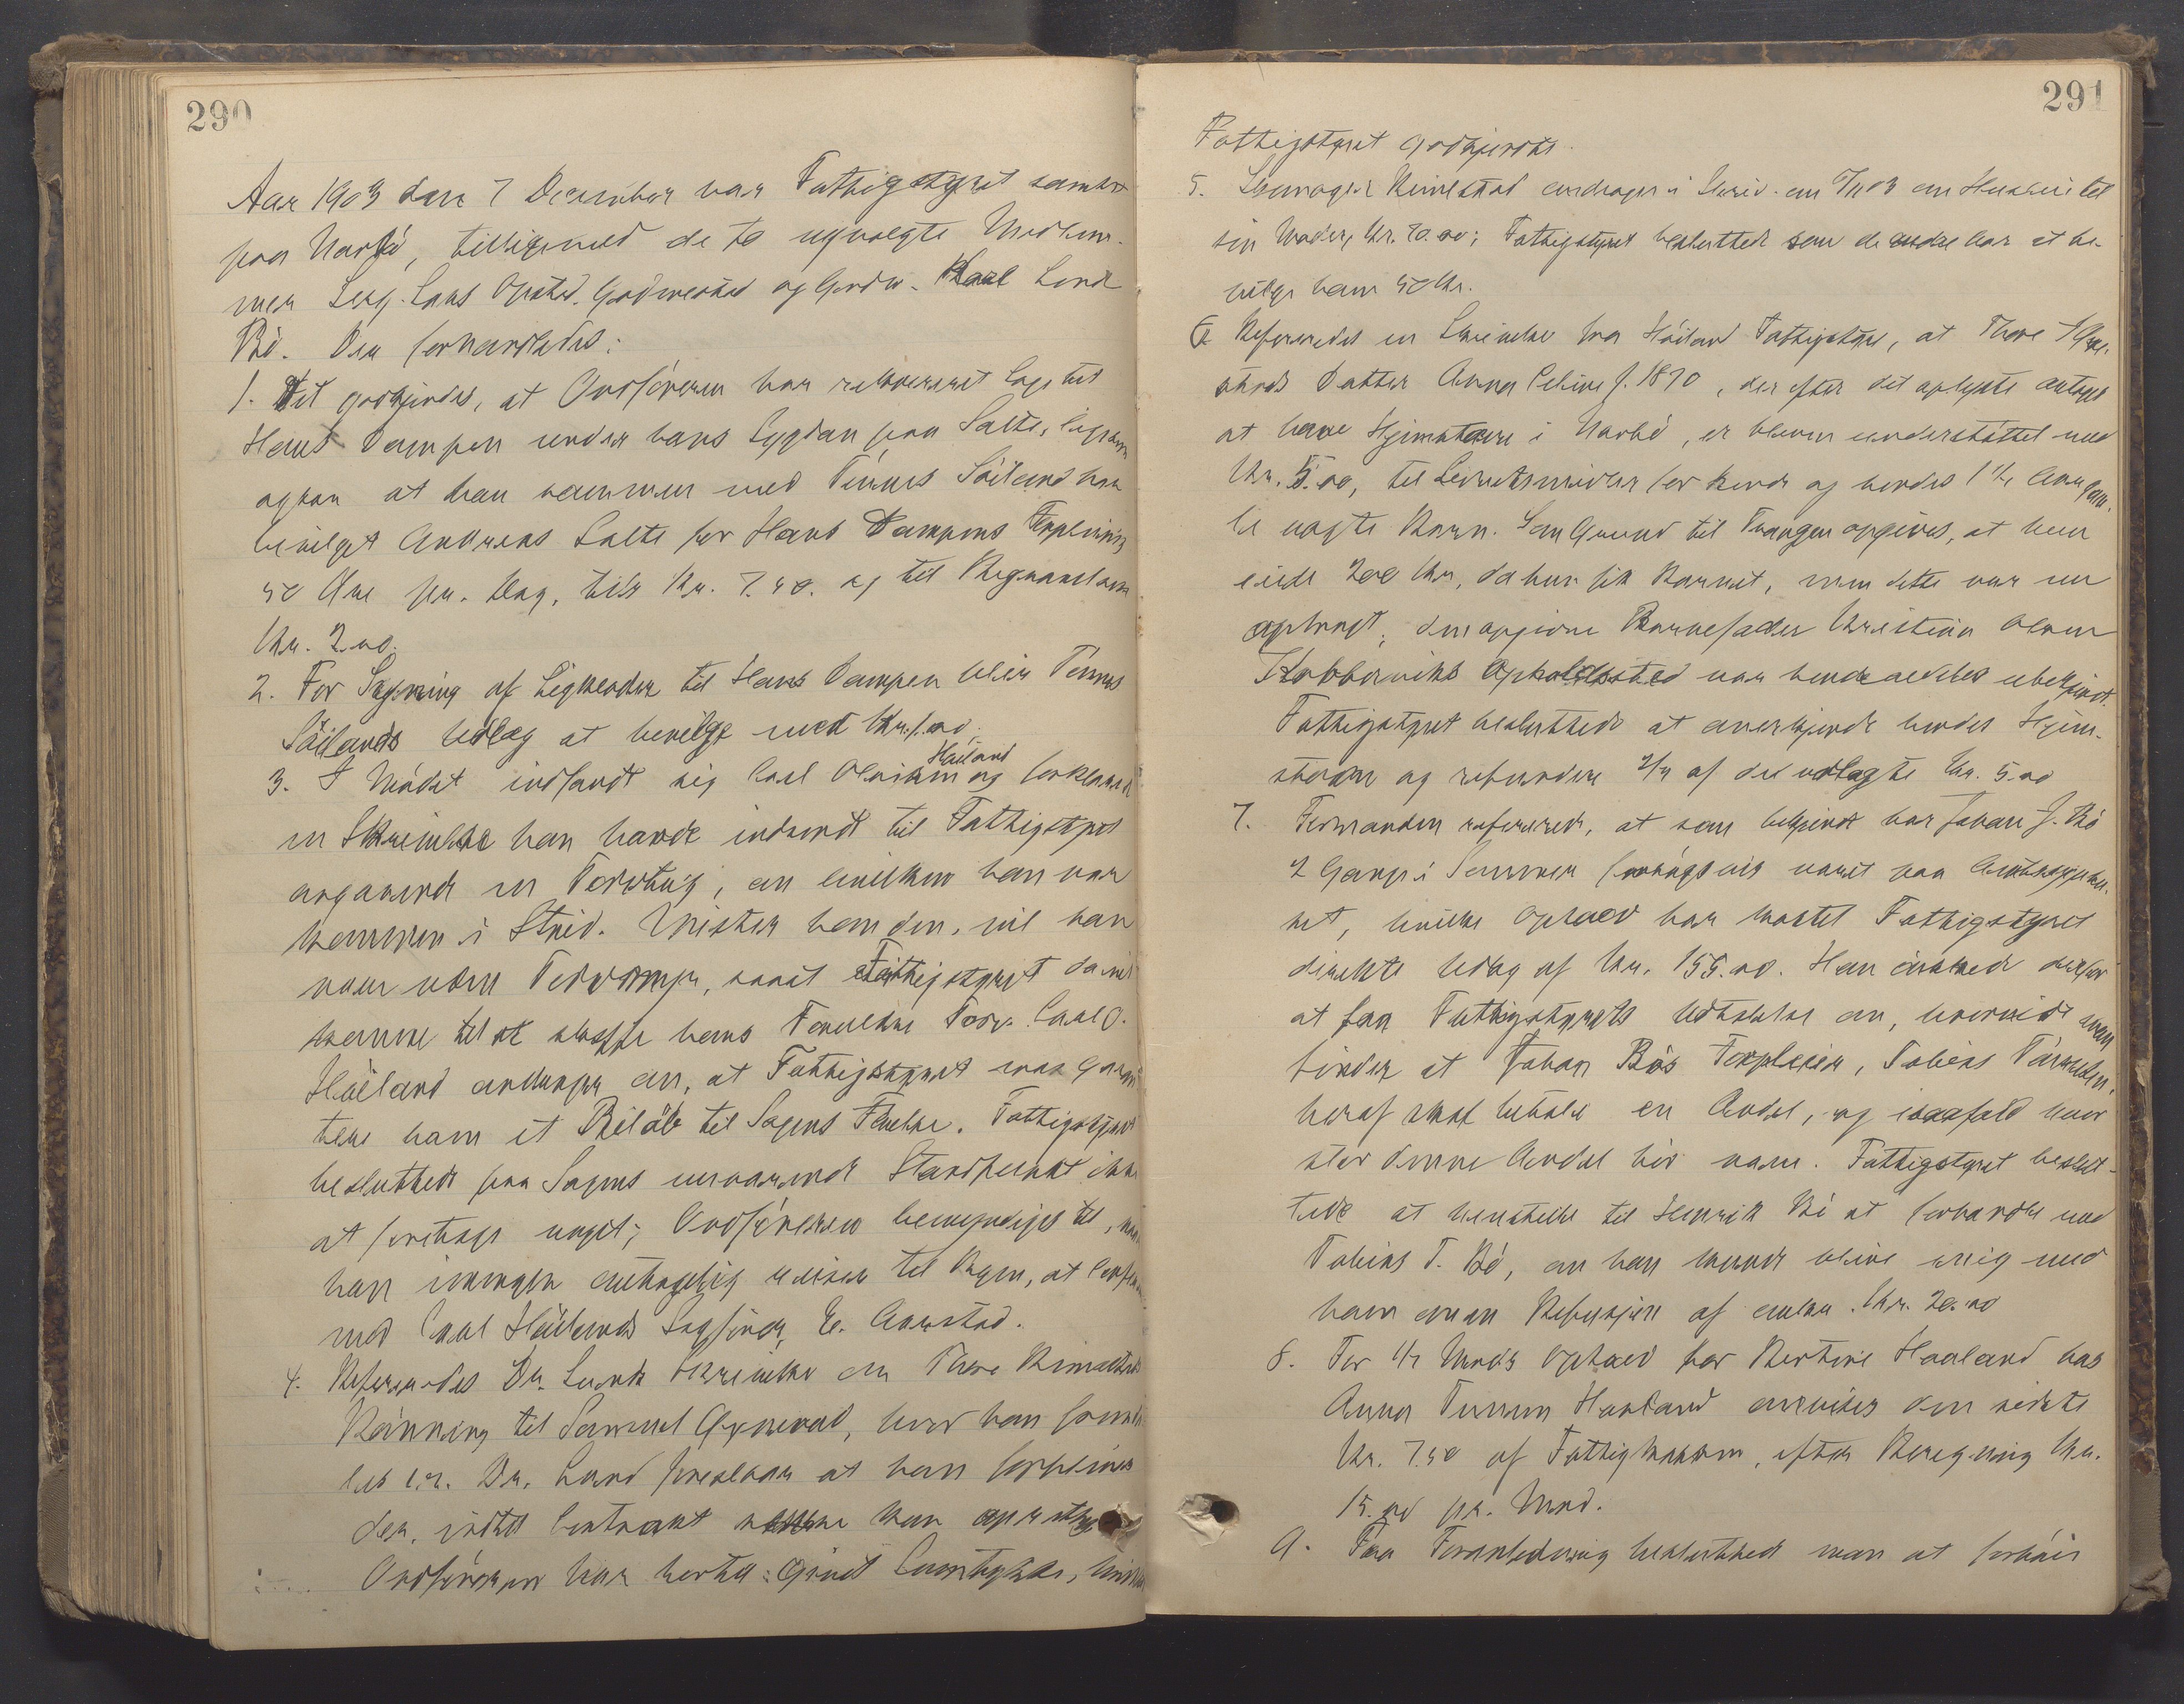 290
Aar 1903 den 7 December var Fattigstyret samlet
paa Narbö, tilligemed de to nyvalgte Medlem-
mer Serg. Lars Opstad, Godmestad og Gerdm. Karl Lende
Bö. Der forhandledes:
1. Det godkjendes, at Ordföreren har rekvireret Læge til
Hans Dampen under hans Sygdom paa Salte, ligesom
ogsaa at han sammen med Tönnes Söiland har
bevilget Andreas Salte for Hans Dampens Forpleining
50 Öre pr. Dag, tils. Kr. 7.50. og til Begravelsen
Kr. 2.00.
2. For Syning af Ligklæder til Hans Dampen blev Tönnes
Söilands Udlæg at bevilge med Kr. 1.00.
3. I Mödet indfandt sig Carl Olsen Höiland og forklarede
en Skrivelse han havde indsendt til Fattigstyret
angaaende en Torvteig, om hvilken han var
kommen i Strid. Mister han den, vil han
være uden Torvmyr, samt Fattigstyret da vil
komme til at skaffe hans Forældre Torv. Carl O.
Höiland andrager om, at Fattigstyret maa garan-
tere ham et Belöb til Sagens Förelse. Fattigstyret
besluttede paa Sagens nuværende Standpunkt ikke
at foretage noget; Ordföreren bemyndiges til, naar
han imorgen antagelig reiser til Byen, at konferere
med Carl Höilands Sagförer, E. Aarstad.
4. Refereredes Dr. Lunds Skrivelse om Thore Rimestads
Rönning til Samuel Grødeland, hvor han
Dr. Lund foreslaar at han forpleines
der, indtil Kontrakt kan oprettes
Ordföreren har hertil givet Samtykke, hvilket
291
Fattigstyret godkjendte.
5. Rimestad andrager i Skriv. om Husleie til
sin Moder, Kr. 70.00; Fattigstyret besluttede som de andre Aar at be-
vilge ham 50 Kr.
6. Refereredes en Skrivelse fra Höiland Fattigstyre, at Thore
Datter Anna Celine f. 1870, der efter det oplyste antages
at have Hjemstavn i Narbö, er bleven understöttet med
Kr. 5.00, til Levnetsmidler for hende og hendes 1 ½ Aar gam-
le uægte Barn. Som Grund til Trangen opgives, at hun
eiede 200 Kr, da hun fik Barnet, men dette var nu
opbrugt, den opgivne Barnefader Kristian Olsen
Kobberviks Opholdssted var hende aldeles ubekjendt.
Fattigstyret besluttede at anerkjende hendes Hjem-
stavn og refundere 3/4 af det udlagte Kr. 5.00
7. Formanden refererede, at som bekjendt har Johan J. Bö
2 Gange i Sommer forsögsvis været paa Amtssygehu-
set, hvilket Ophold har kostet Fattigstyret
direkte Udlæg af Kr. 155.00. Han önskede derfor
at faa Fattigstyrets Udtalelse om, hvorvidt man
finder at Johan Bös Forpleier, Tobias Tönnesen,
heraf skal betale en Andel, og isaafald hvor
stor denne Andel bör være. Fattigstyret beslut-
tede at henstille til Henrik Bö at forhandle med
Tobias T. Bö, om han kunde blive enig med
ham om en Refusion af omkr. Kr. 20.00
8. For ½ Mnds Ophold for Bertine Haaland hos
Anna Haaland anvises den sidste
Kr. 7.50 af Fattigkassen, efter Beregning Kr.
15.00 pr. Mnd.
9. Paa Foranledning besluttede man at forhöie